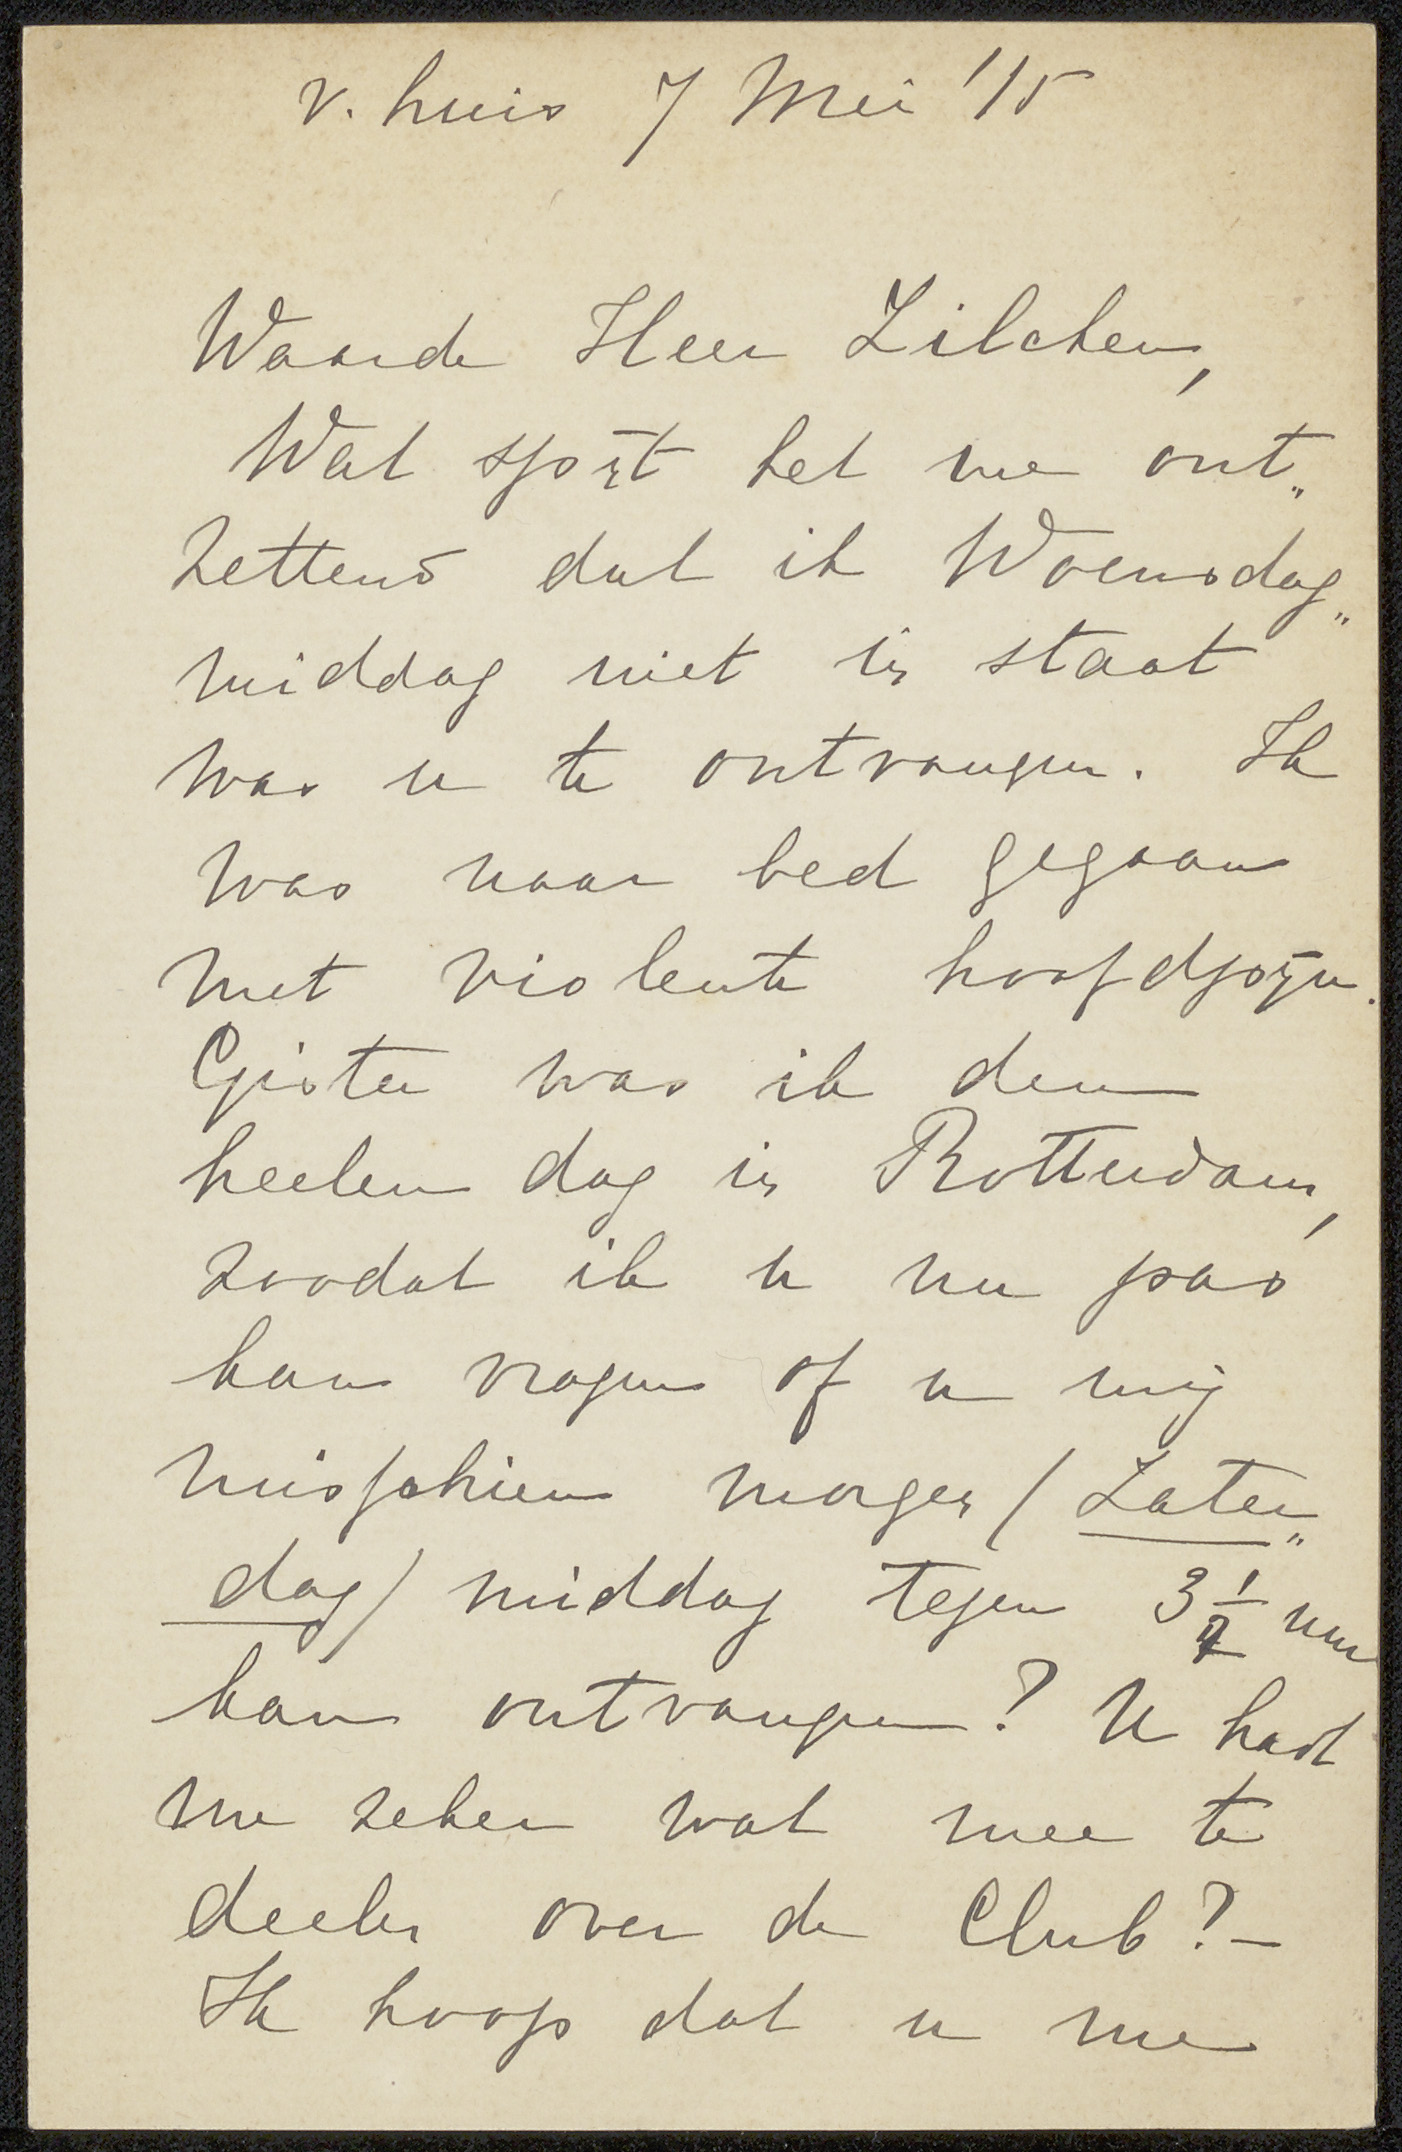 v. huis 7 Mei '15
Waarde Heer Zilcken,
Wat spijt het me ont„
zettend dat ik Woensdag„
middag niet in staat
was u te ontvangen. Ik
was naar bed gegaan
met violente hoofdpijn.
Gister was ik den
heelen dag in Rotterdam,
zoodat ik u nu pas
kan vragen of u mij
misschien morgen (Zater„
dag) middag tegen 3 1/2 uur
kan ontvangen? U hadt
me zeker wat mee te
deelen over de Club?—
Ik hoop dat u me